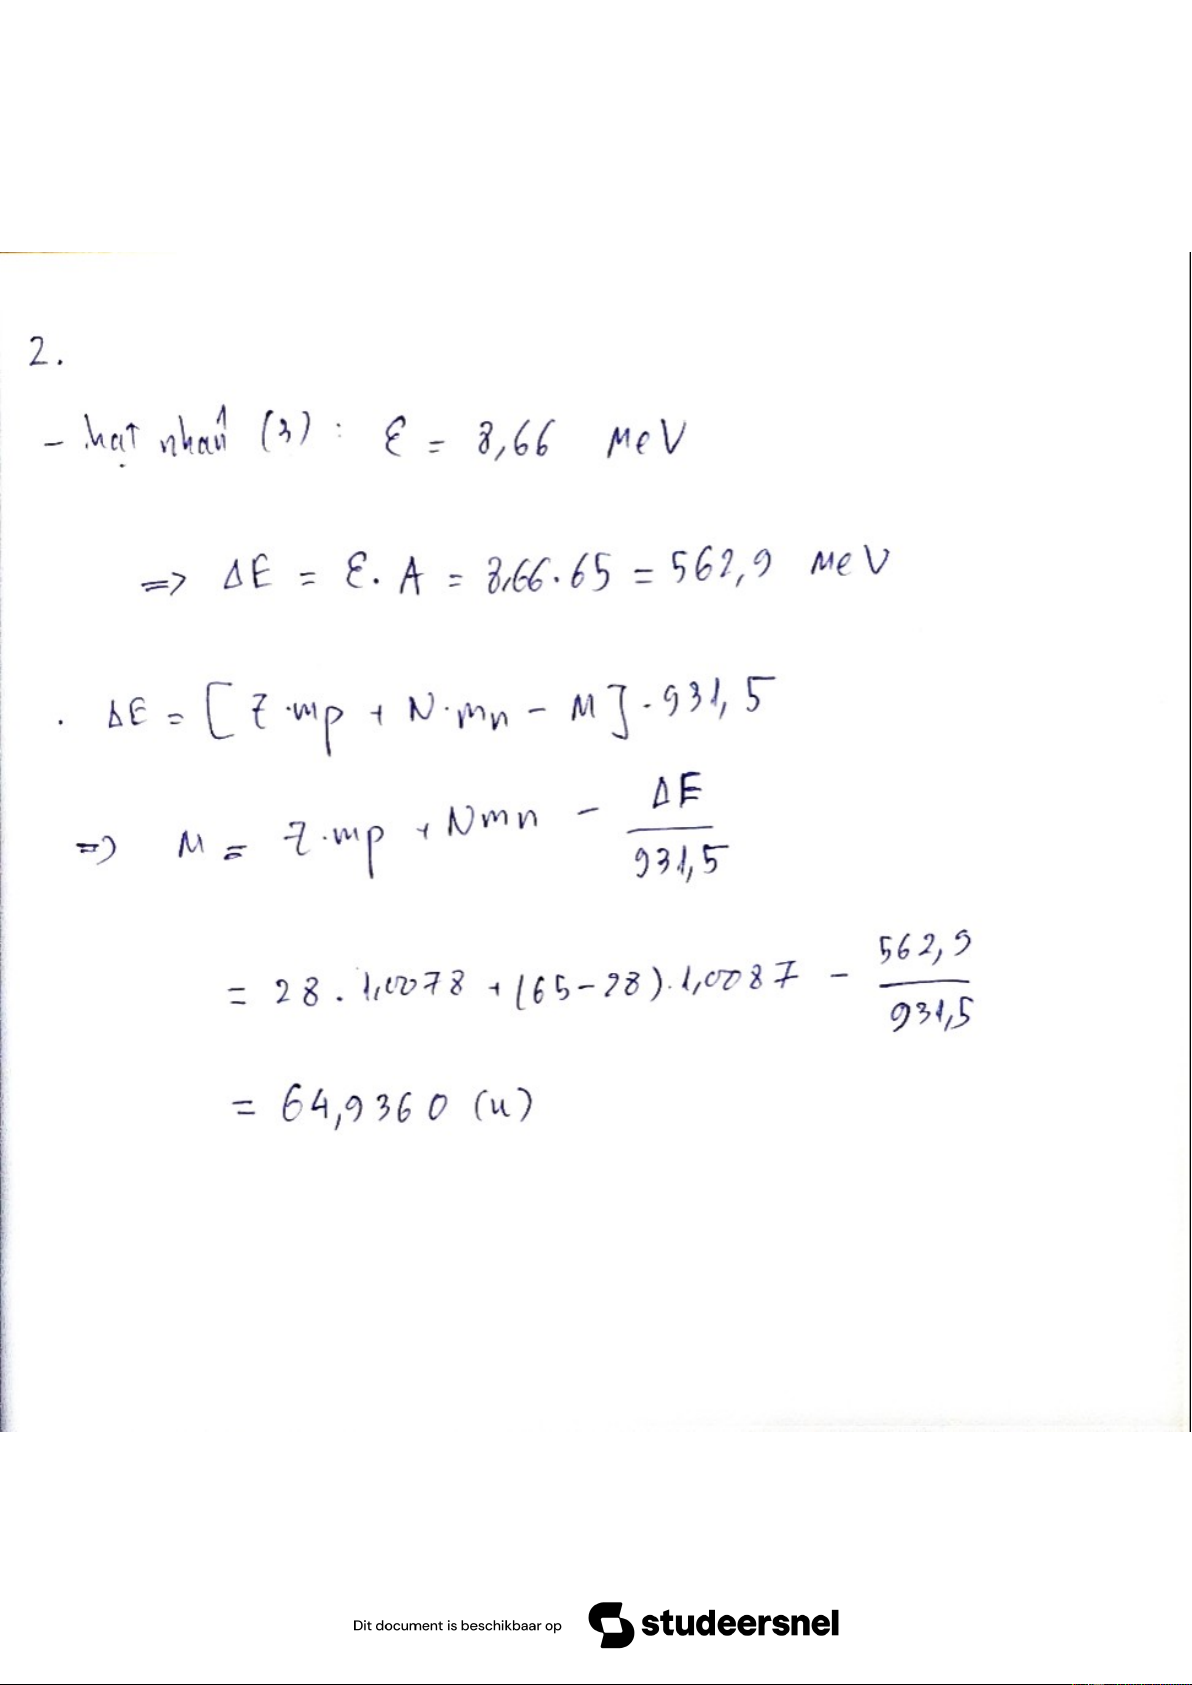 2.
- hạt nhân (3) : ε = 8,66 MeV
=> ΔE = ε. A = 8,66.65 = 562,9 MeV
. ΔE = [ Z.mp + N.mn - M ] . 931,5
=> M = Z.mp + Nmn - ΔE / 931,5
= 28 . 1,0078 + (65-28).1,0087 - 562,9 / 931,5
= 64,9360 (u)
Dit document is beschikbaar op studeersnel